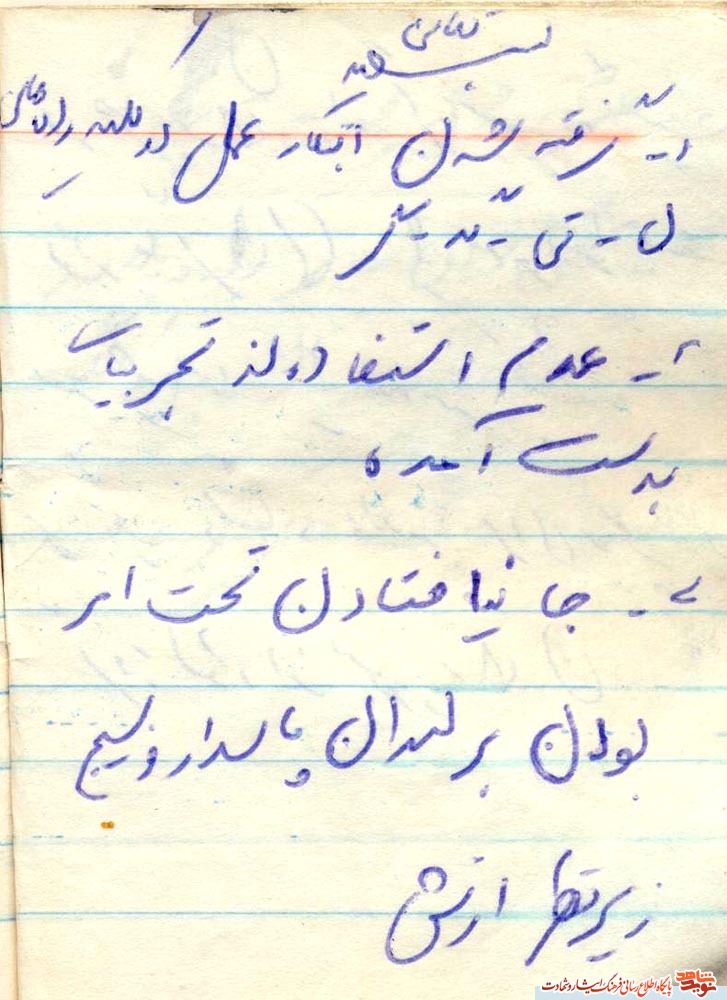 بسمه تعالی
۱- گرفته شدن ابتکار عمل در کلیه رده‌های
۲- عدم استفاده از تجربیات
بدست آمده
۳- جا نیافتادن تحت امر
بودن برادران پاسدار و بسیج
زیر نظر ارتش
نوید شاهد
پایگاه اطلاع رسانی فرهنگ ایثار و شهادت